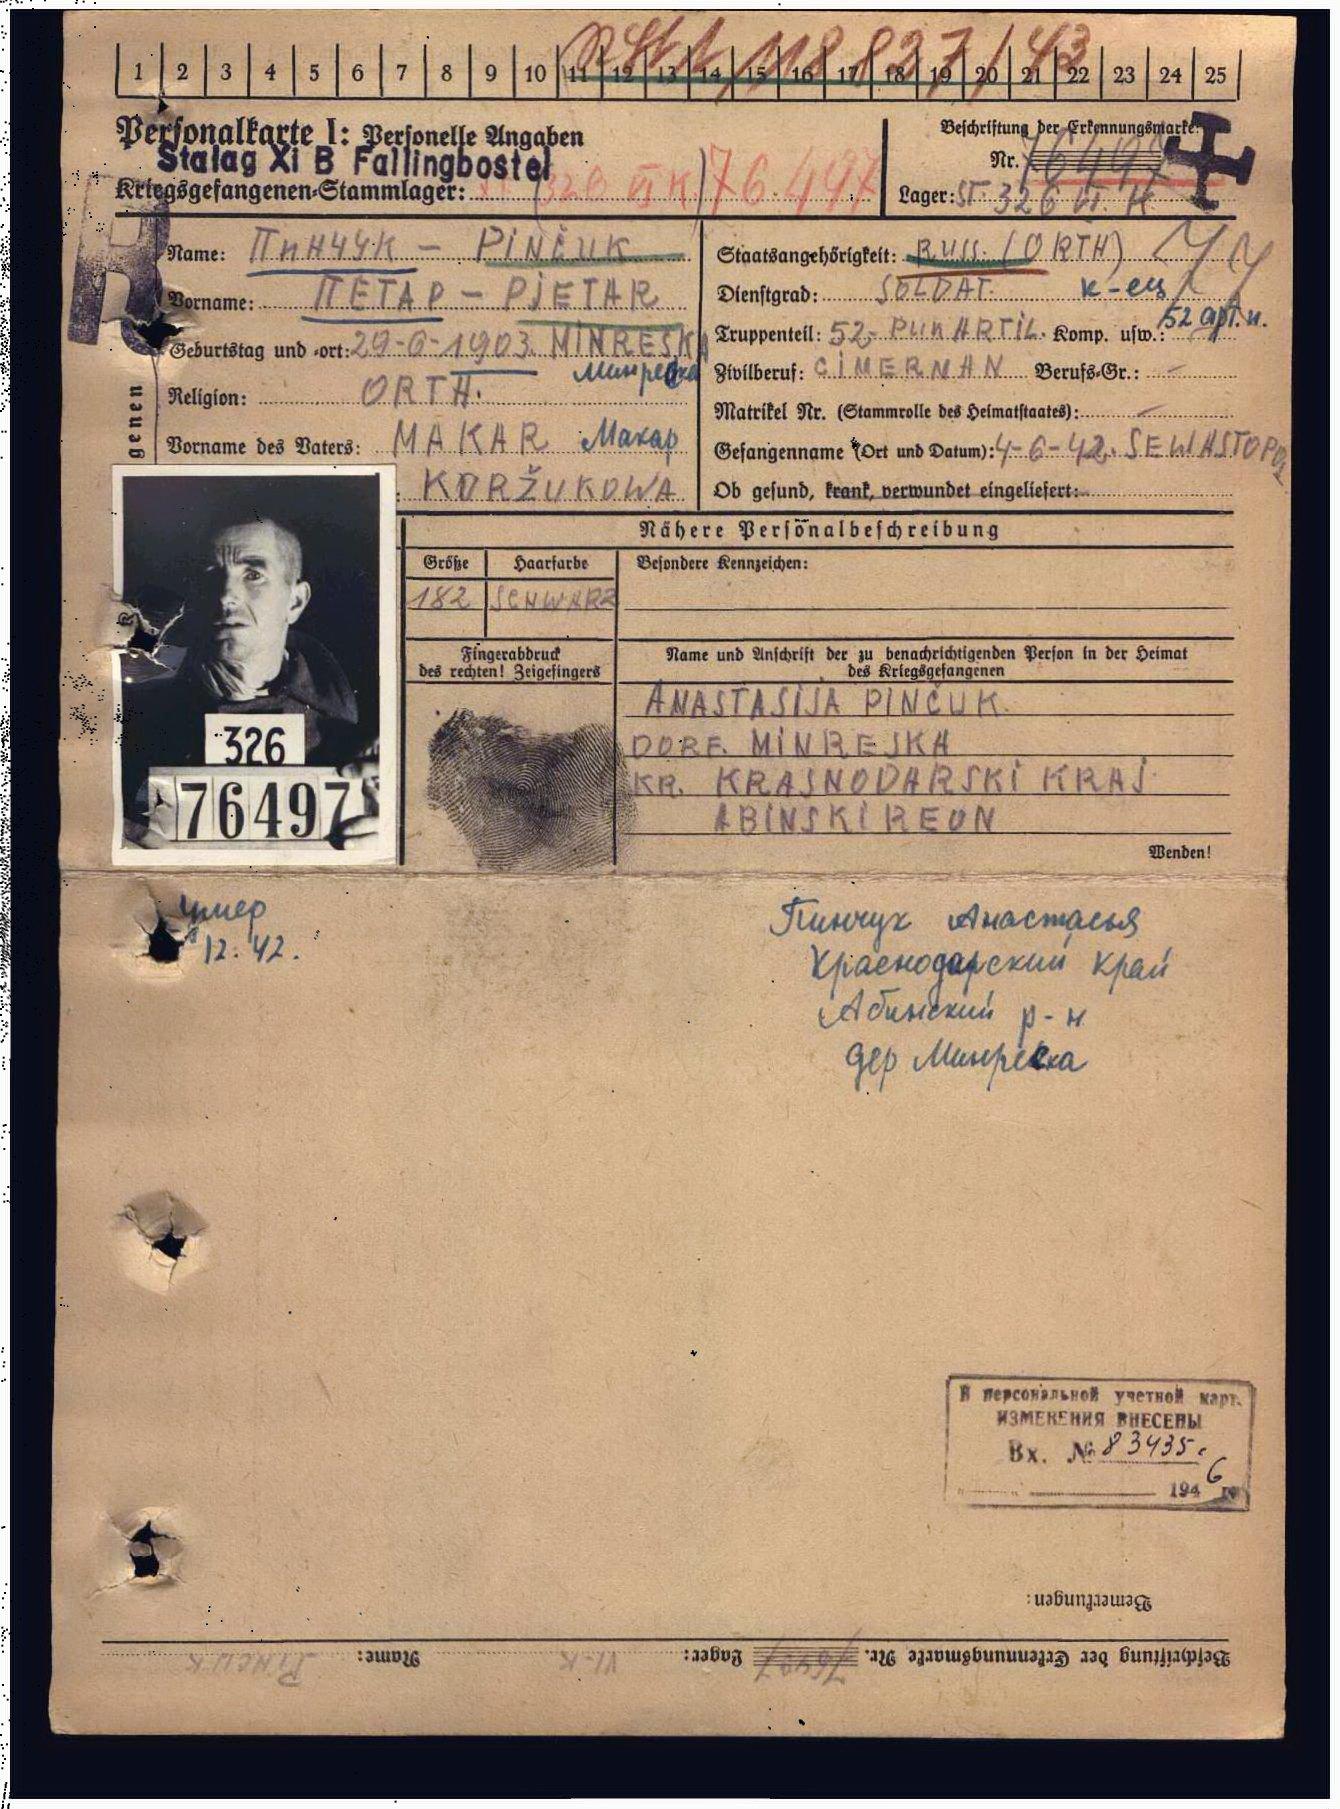 1 2 3 4 5 6 7 8 9 10 11 12 13 14 15 16 17 18 19 20 21 22 23 24 25
118 827/43
Personalkarte I: Personelle Angaben
Stalag XI B Fallingbostel
Kriegsgefangenen-Stammlager: (326 VI K) 76497
Beschriftung der Erkennungsmarke:
Nr. 76497
Lager: ST. 326 VI K
Name: Пинчук – PINČUK
Vorname: ПЕТАР – PJETAR
Geburtstag und -ort: 29-6-1903. MINRESKA
Минреска
Religion: ORTH.
Vorname des Vaters: MAKAR Макар
KORŽUKOWA
genen
Staatsangehörigkeit: RUSS. (ORTH)
Dienstgrad: SOLDAT. к-ец
Truppenteil: 52- PUK ARTIL. Komp. usw.: 52 арт. п.
Zivilberuf: CIMERMAN Berufs-Gr.: –
Matrikel Nr. (Stammrolle des Heimatstaates): –
Gefangenname (Ort und Datum): 4-6-42. SEWASTOPOL
Ob gesund, krank, verwundet eingeliefert:
Nähere Personalbeschreibung
Größe Haarfarbe Besondere Kennzeichen:
182 SCHWARZ
Fingerabdruck
des rechten! Zeigefingers
Name und Anschrift der zu benachrichtigenden Person in der Heimat
des Kriegsgefangenen
ANASTASIJA PINČUK.
DORF. MINRESKA
KR. KRASNODARSKI KRAJ
ABINSKI REON
Wenden!
326
76497
умер
8 12. 42.
Пинчук Анастасья
Краснодарский край
Абинский р-н
дер Минреска
В персональной учетной карт.
ИЗМЕНЕНИЯ ВНЕСЕНЫ
Вх. № 83435с
1946 г.
Bemerkungen:
Beschriftung der Erkennungsmarke Nr. 76497 Lager: VI-K Name: PINČUK